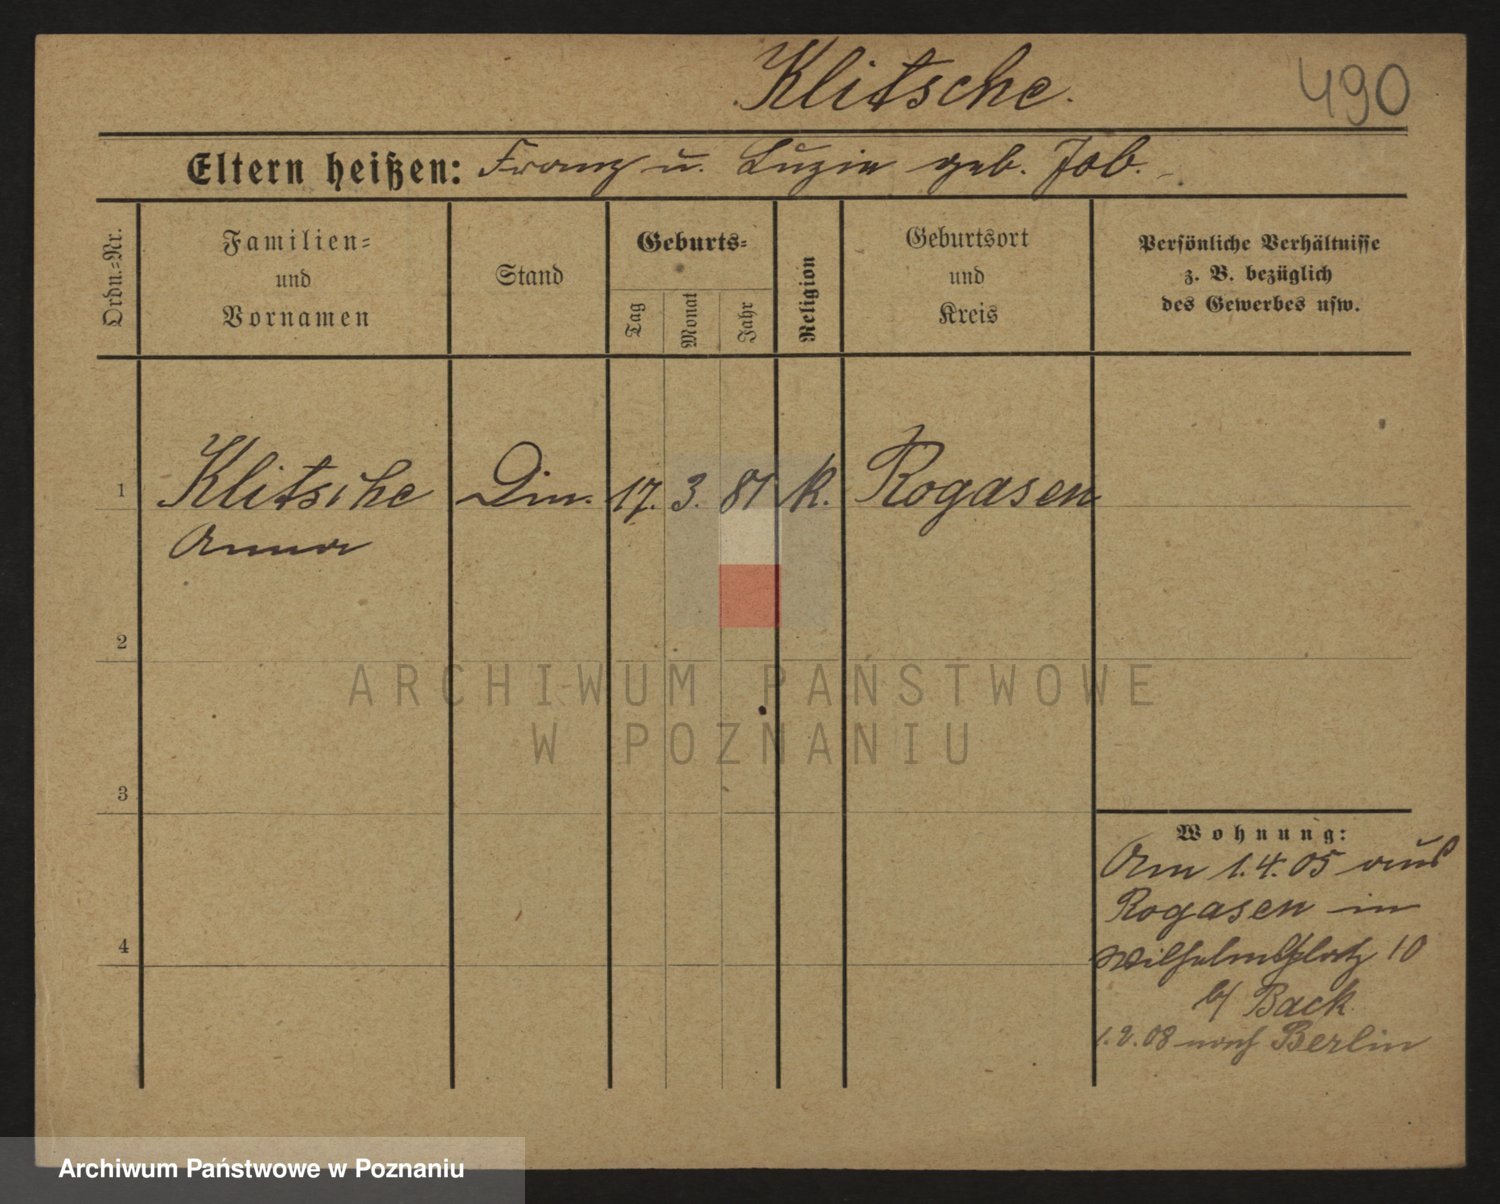 Klitsche.
490
Eltern heißen: Franz u. Luzie geb. Job.
Ordn.-Nr.
Familien-
und
Vornamen
Stand
Geburts-
Tag
Monat
Jahr
Religion
Geburtsort
und
Kreis
Persönliche Verhältnisse
z. B. bezüglich
des Gewerbes usw.
1 Klitsche Din. 17. 3. 81 k. Rogasen
Anna
2
3
4
Wohnung:
Am 1.4.05 aus
Rogasen in
Wilhelmsplatz 10
b/ Back
1.2.08 nach Berlin
ARCHIWUM PAŃSTWOWE
W POZNANIU
Archiwum Państwowe w Poznaniu